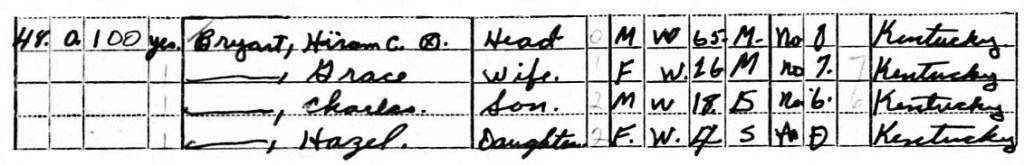 48. O. 100 yes. Bryant, Hiram C. ⓧ. Head 0 M W 65. M. No 8 Kentucky.
——, Grace Wife. 1 F W. 26 M No 7. 7 Kentucky
——, Charles. Son. 2 M W 18 S No 6. 6 Kentucky
——, Hazel. Daughter 2 F. W. S No 0 Kentucky